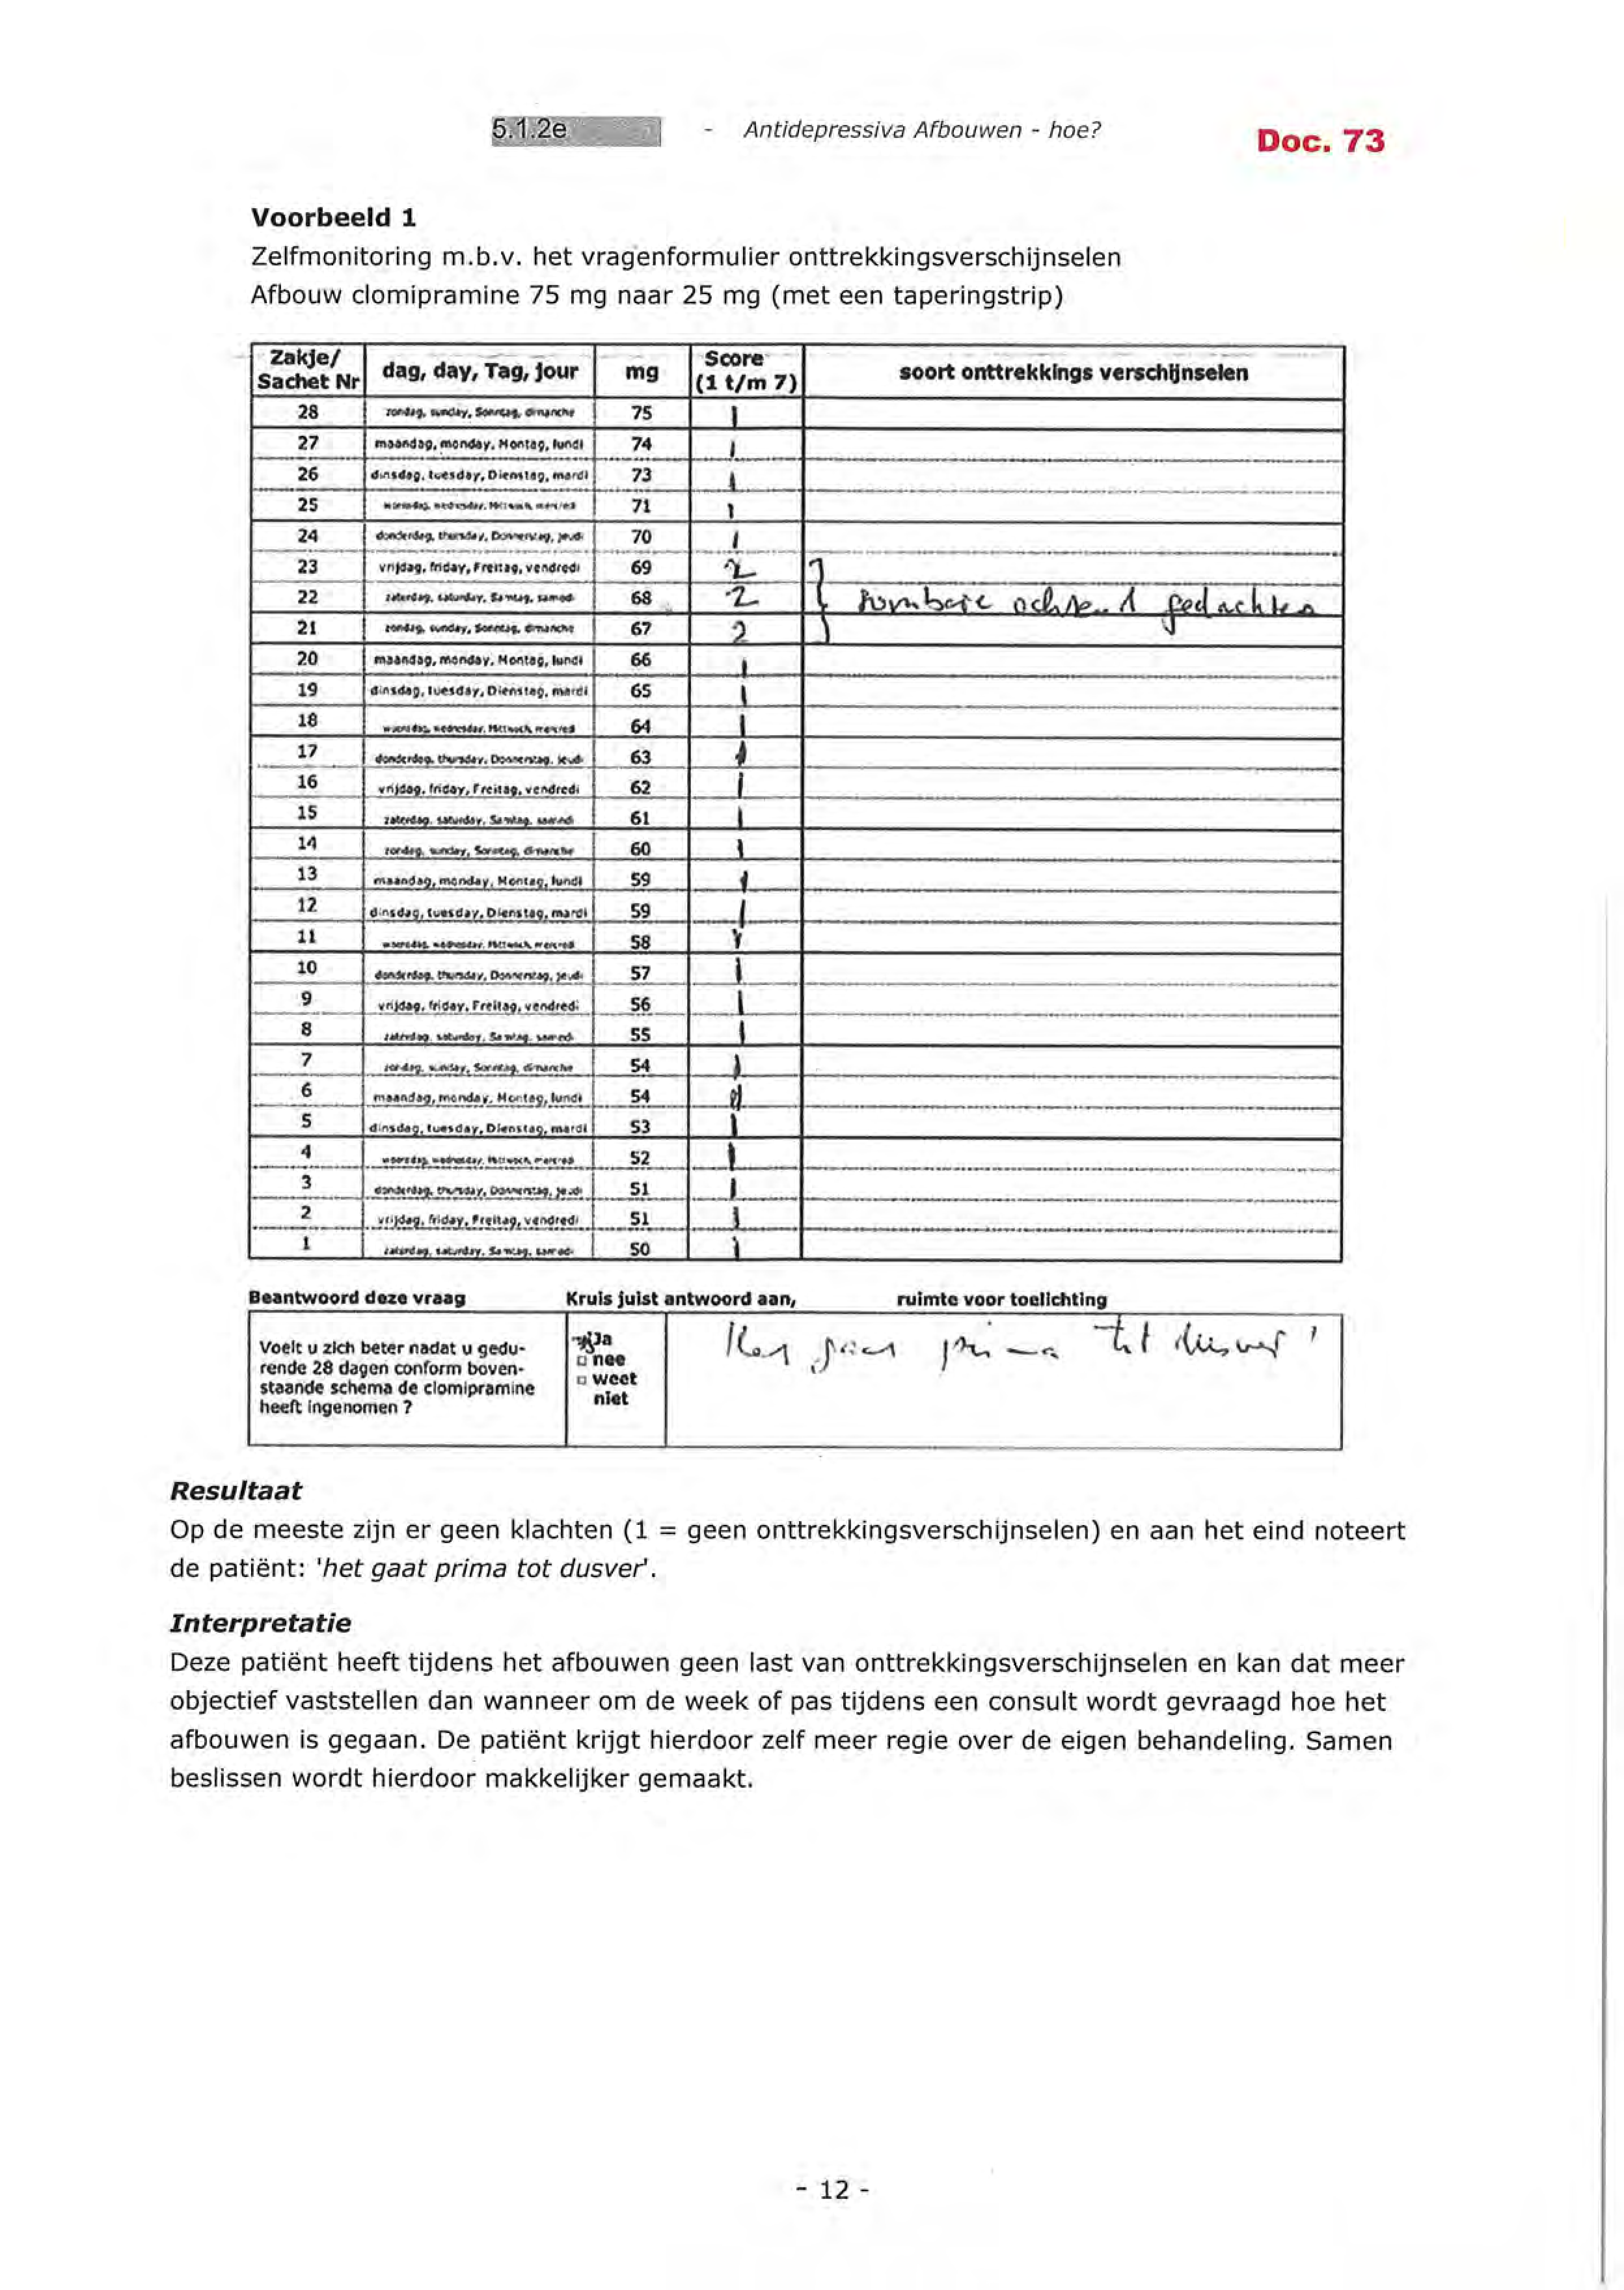 5.1.2e - Antidepressiva Afbouwen - hoe? Doc. 73
Voorbeeld 1
Zelfmonitoring m.b.v. het vragenformulier onttrekkingsverschijnselen
Afbouw clomipramine 75 mg naar 25 mg (met een taperingstrip)
Zakje/ Sachet Nr dag, day, Tag, jour mg Score (1 t/m 7) soort onttrekkings verschijnselen
28 zondag, sunday, Sonntag, dimanche 75 1
27 maandag, monday, Montag, lundi 74 1
26 dinsdag, tuesday, Dienstag, mardi 73 1
25 woensdag, wednesday, Mittwoch, mercredi 71 1
24 donderdag, thursday, Donnerstag, jeudi 70 1
23 vrijdag, friday, Freitag, vendredi 69 2
22 zaterdag, saturday, Samstag, samedi 68 2 sombere ochtend gedachten
21 zondag, sunday, Sonntag, dimanche 67 2
20 maandag, monday, Montag, lundi 66 1
19 dinsdag, tuesday, Dienstag, mardi 65 1
18 woensdag, wednesday, Mittwoch, mercredi 64 1
17 donderdag, thursday, Donnerstag, jeudi 63 1
16 vrijdag, friday, Freitag, vendredi 62 1
15 zaterdag, saturday, Samstag, samedi 61 1
14 zondag, sunday, Sonntag, dimanche 60 1
13 maandag, monday, Montag, lundi 59 1
12 dinsdag, tuesday, Dienstag, mardi 59 1
11 woensdag, wednesday, Mittwoch, mercredi 58 1
10 donderdag, thursday, Donnerstag, jeudi 57 1
9 vrijdag, friday, Freitag, vendredi 56 1
8 zaterdag, saturday, Samstag, samedi 55 1
7 zondag, sunday, Sonntag, dimanche 54 1
6 maandag, monday, Montag, lundi 54 1
5 dinsdag, tuesday, Dienstag, mardi 53 1
4 woensdag, wednesday, Mittwoch, mercredi 52 1
3 donderdag, thursday, Donnerstag, jeudi 51 1
2 vrijdag, friday, Freitag, vendredi 51 1
1 zaterdag, saturday, Samstag, samedi 50 1
Beantwoord deze vraag Kruis juist antwoord aan, ruimte voor toelichting
Voelt u zich beter nadat u gedu-
rende 28 dagen conform boven-
staande schema de clomipramine
heeft ingenomen ?
Ja
nee
weet
niet
Het gaat prima tot dusver !
Resultaat
Op de meeste zijn er geen klachten (1 = geen onttrekkingsverschijnselen) en aan het eind noteert
de patiënt: 'het gaat prima tot dusver'.
Interpretatie
Deze patiënt heeft tijdens het afbouwen geen last van onttrekkingsverschijnselen en kan dat meer
objectief vaststellen dan wanneer om de week of pas tijdens een consult wordt gevraagd hoe het
afbouwen is gegaan. De patiënt krijgt hierdoor zelf meer regie over de eigen behandeling. Samen
beslissen wordt hierdoor makkelijker gemaakt.
- 12 -